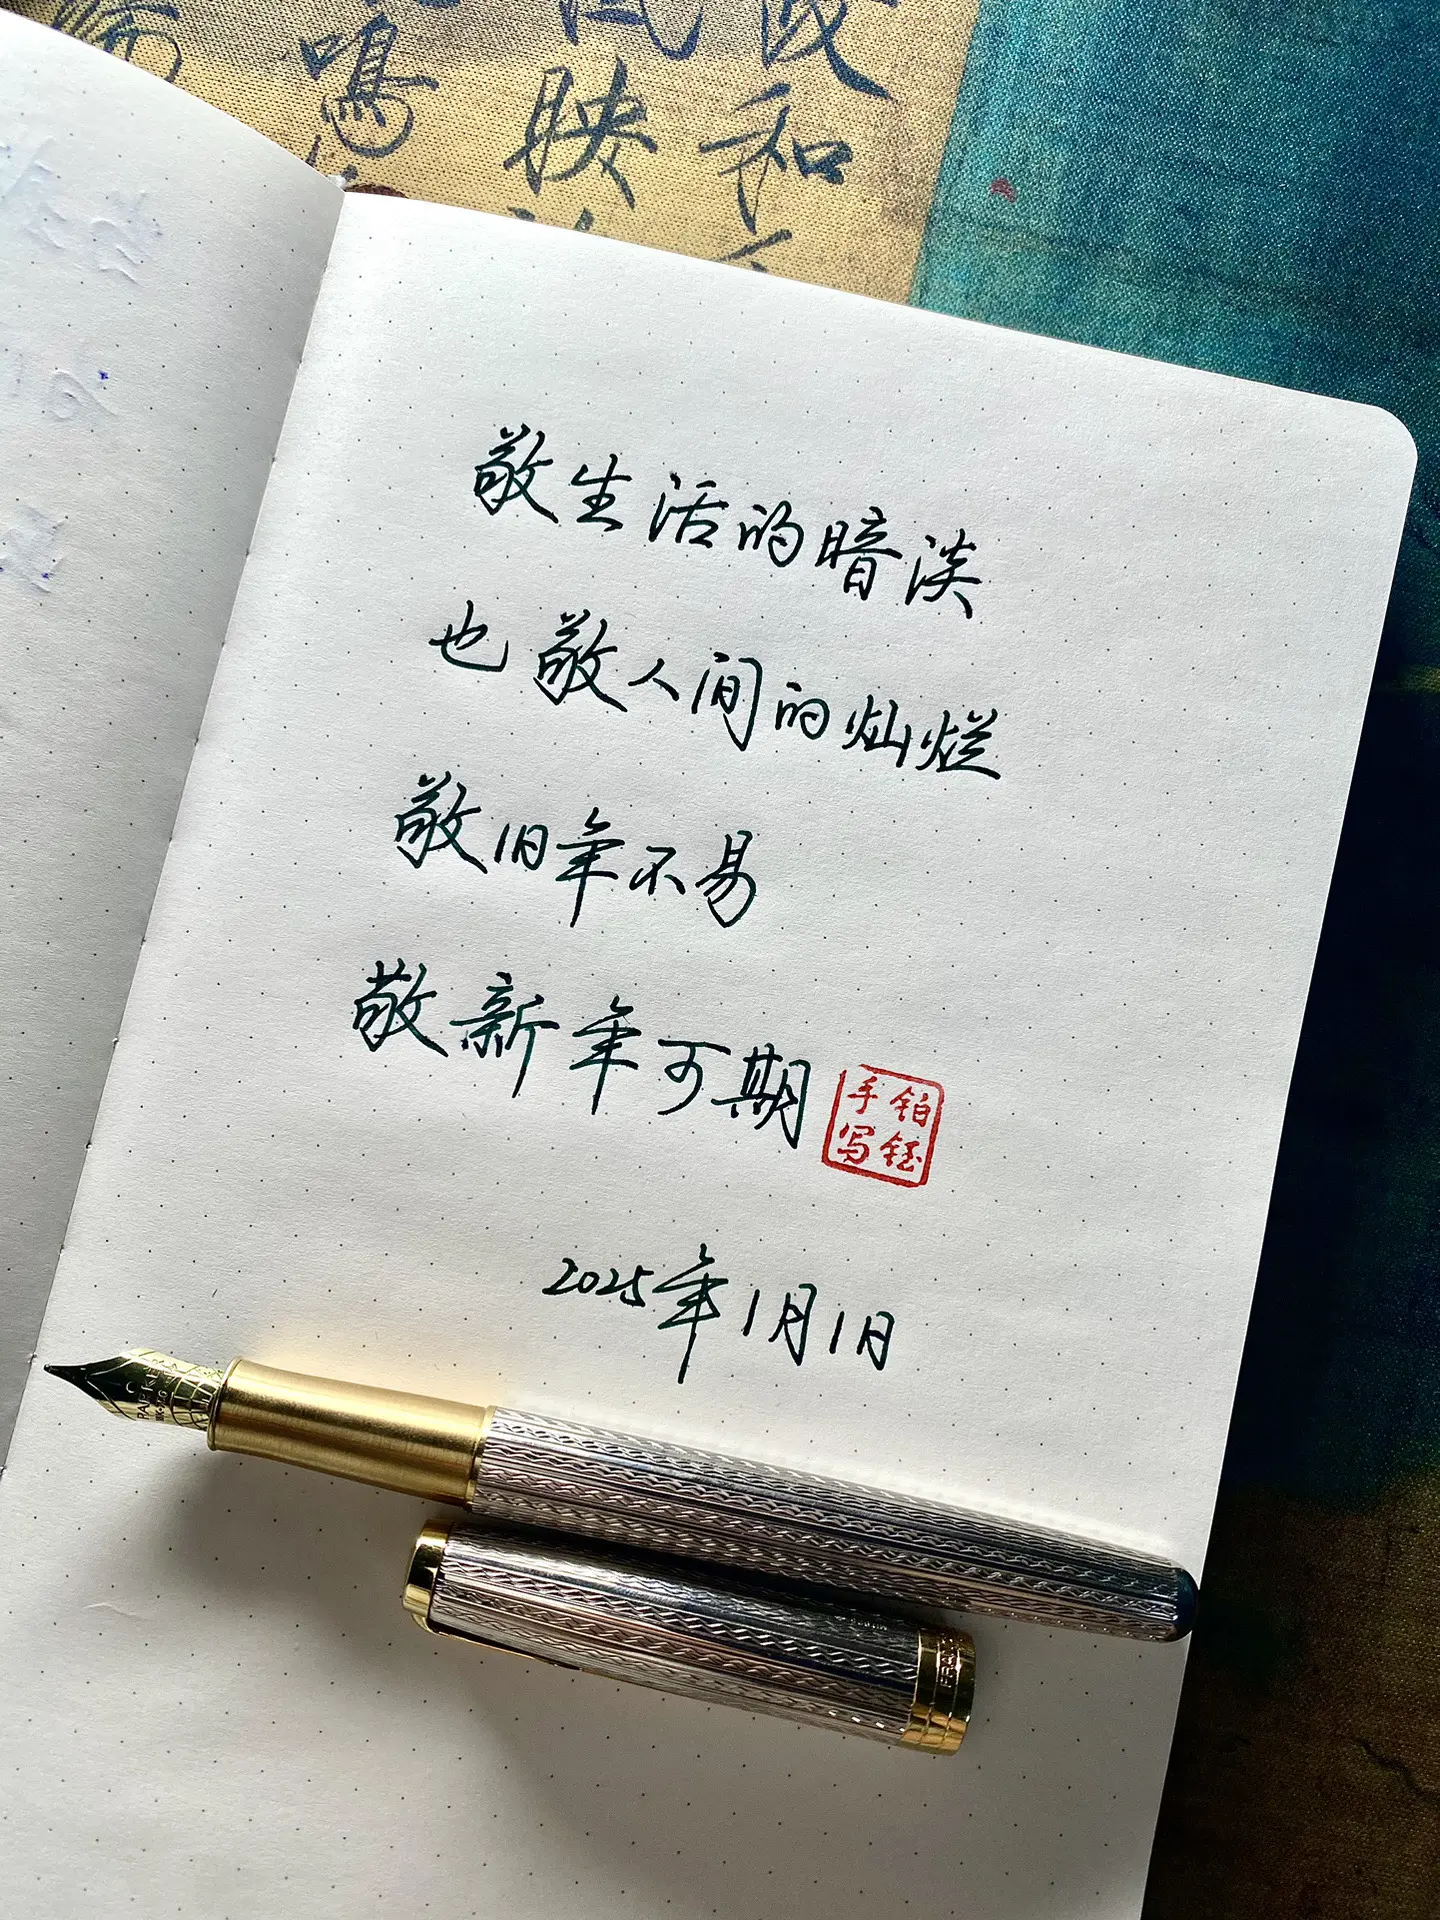 鸣
映
和
敬生活的暗淡
也敬人间的灿烂
敬旧年不易
敬新年可期
铂钰
手写
2025年1月1日
PARKER